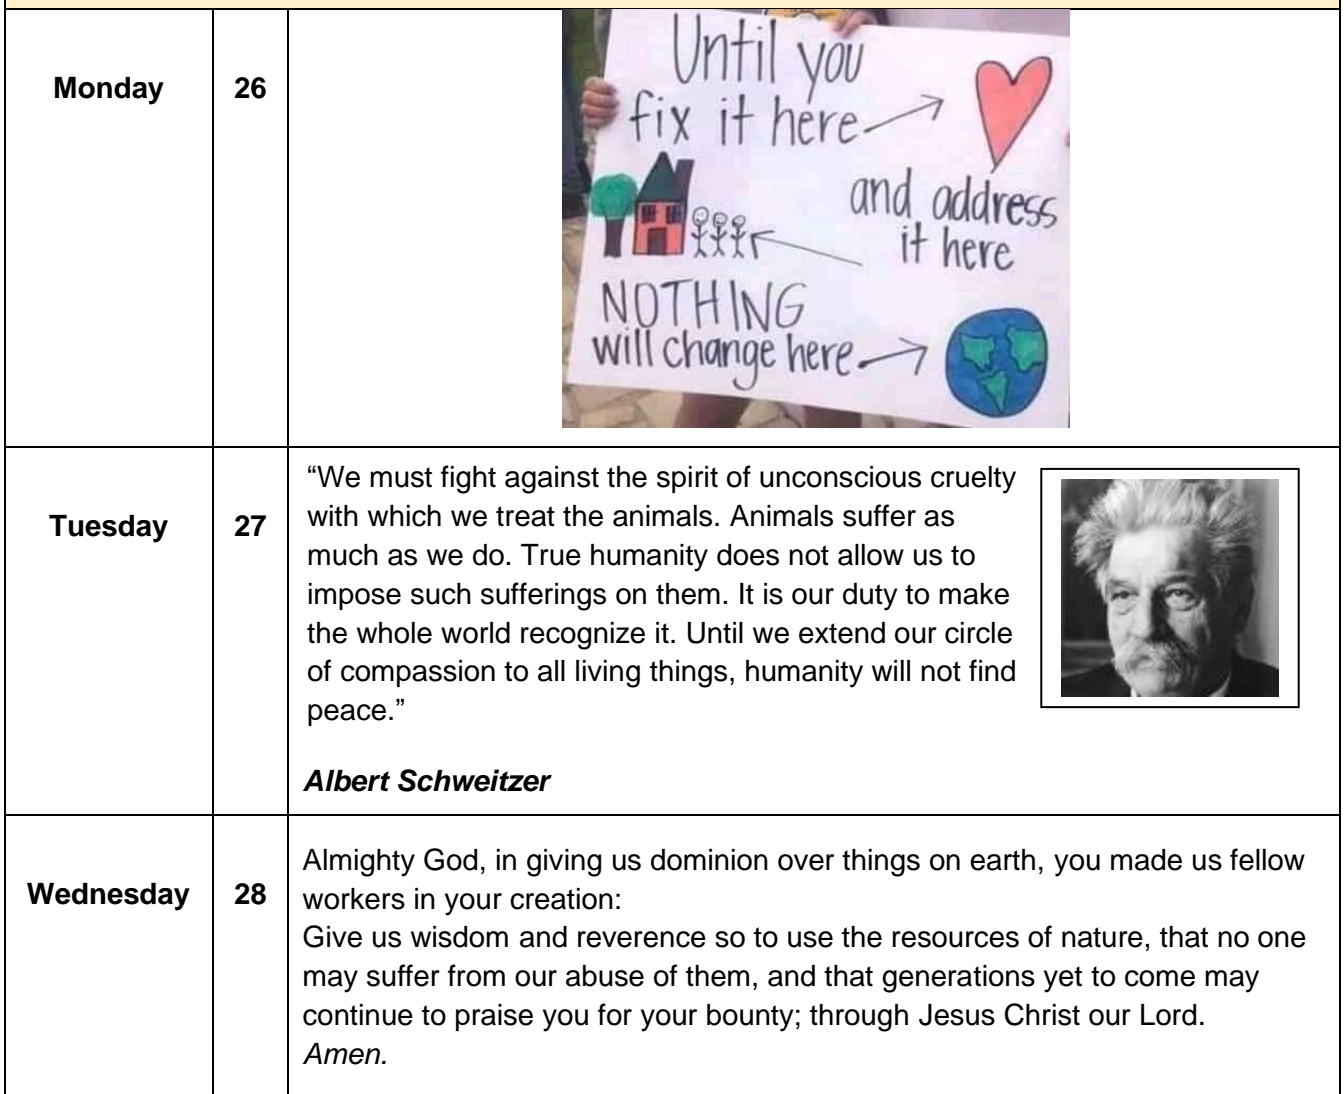 Monday
26
Until you
fix it here
and address
it here
NOTHING
will change here
Tuesday
27
“We must fight against the spirit of unconscious cruelty
with which we treat the animals. Animals suffer as
much as we do. True humanity does not allow us to
impose such sufferings on them. It is our duty to make
the whole world recognize it. Until we extend our circle
of compassion to all living things, humanity will not find
peace.”
Albert Schweitzer
Wednesday
28
Almighty God, in giving us dominion over things on earth, you made us fellow
workers in your creation:
Give us wisdom and reverence so to use the resources of nature, that no one
may suffer from our abuse of them, and that generations yet to come may
continue to praise you for your bounty; through Jesus Christ our Lord.
Amen.